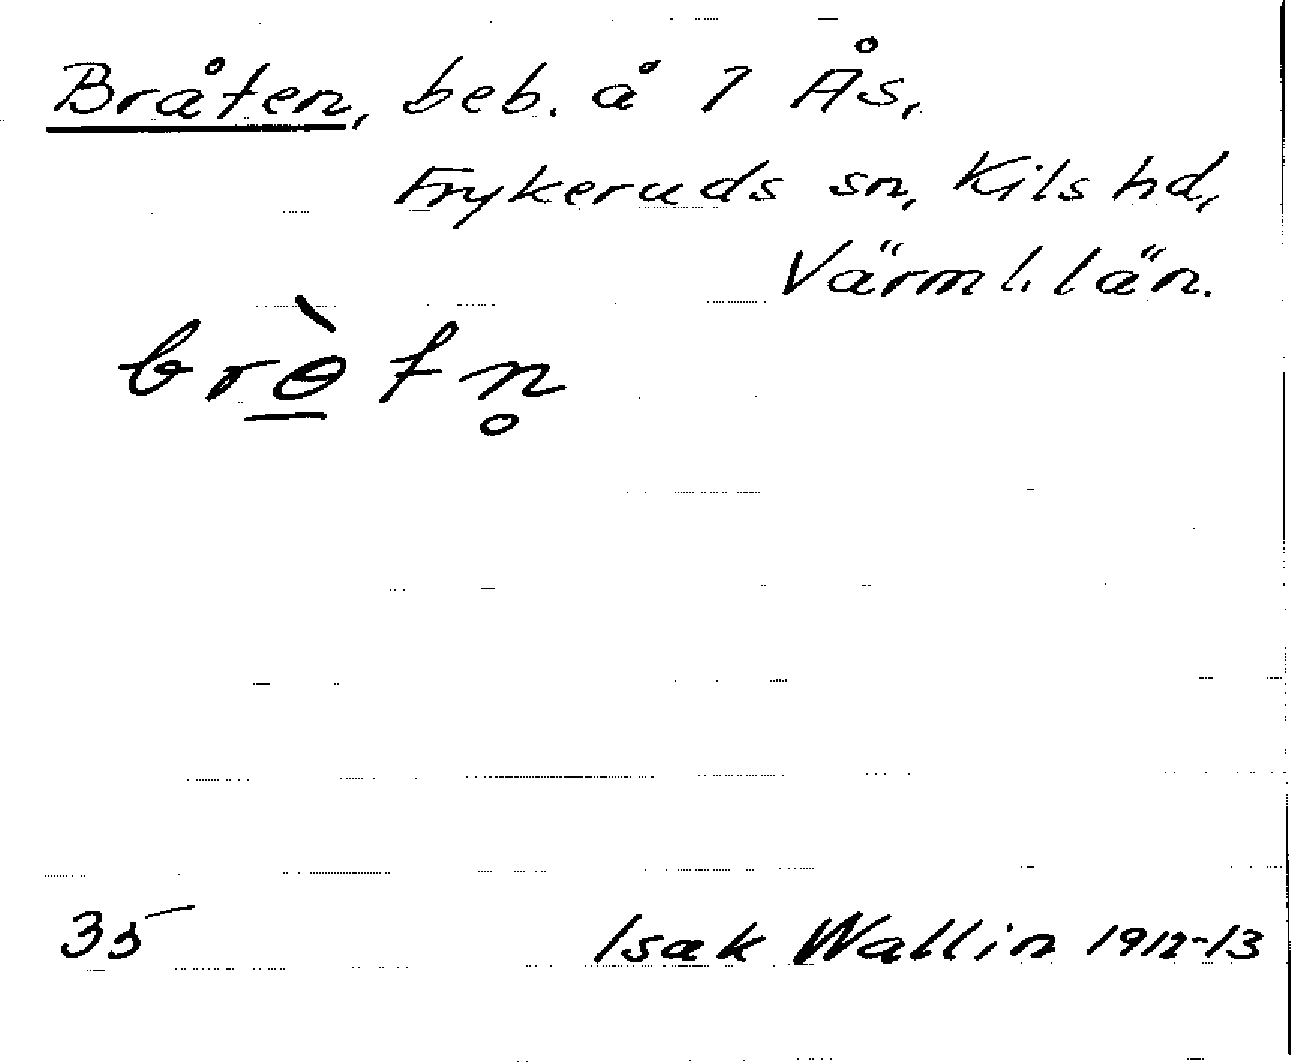 Bråten, beb. å 1 Ås,
Frykeruds sn, Kils hd,
Värml. län.
brɵ̠̀tn̥
35 Isak Wallin 1912-13